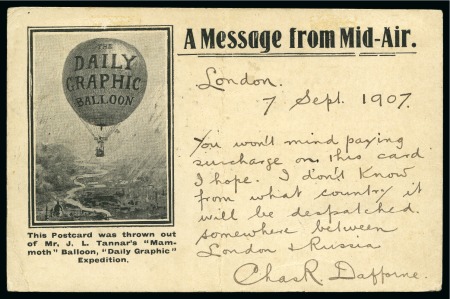 A Message from Mid-Air.
THE
DAILY
GRAPHIC
BALLOON
London.
7 Sept. 1907.
You won't mind paying
surcharge on this card
I hope. I don't know
from what country it
will be despatched.
somewhere between
London & Russia
Chas R. Dafforne.
This Postcard was thrown out
of Mr. J. L. Tannar's "Mam-
moth" Balloon, "Daily Graphic"
Expedition.